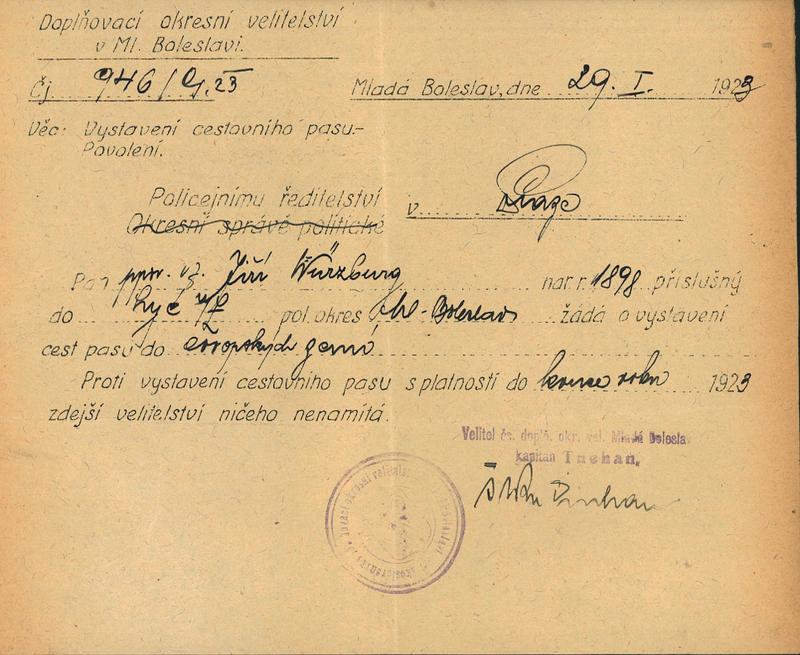 Doplňovací okresní velitelství
v Ml. Boleslavi.
Čj. 946/ 23
Mladá Boleslav, dne 29. I. 1923
Věc: Vystavení cestovního pasu.-
Povolení.
Policejnímu ředitelství
Okresní správě politické
v Praze
Pan Jiří Würzburg nar. r. 1898 příslušný
do pol. okres Ml. Boleslav žádá o vystavení
cest pasu do evropských zemí
Proti vystavení cestovního pasu s platností do konce roku 1923
zdejší velitelství ničeho nenamítá.
Velitel čs. dopln. okr. vel. Mladá Bolesla
kapitan Tuchan,